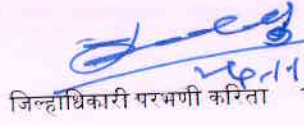 जिल्हाधिकारी परभणी करिता